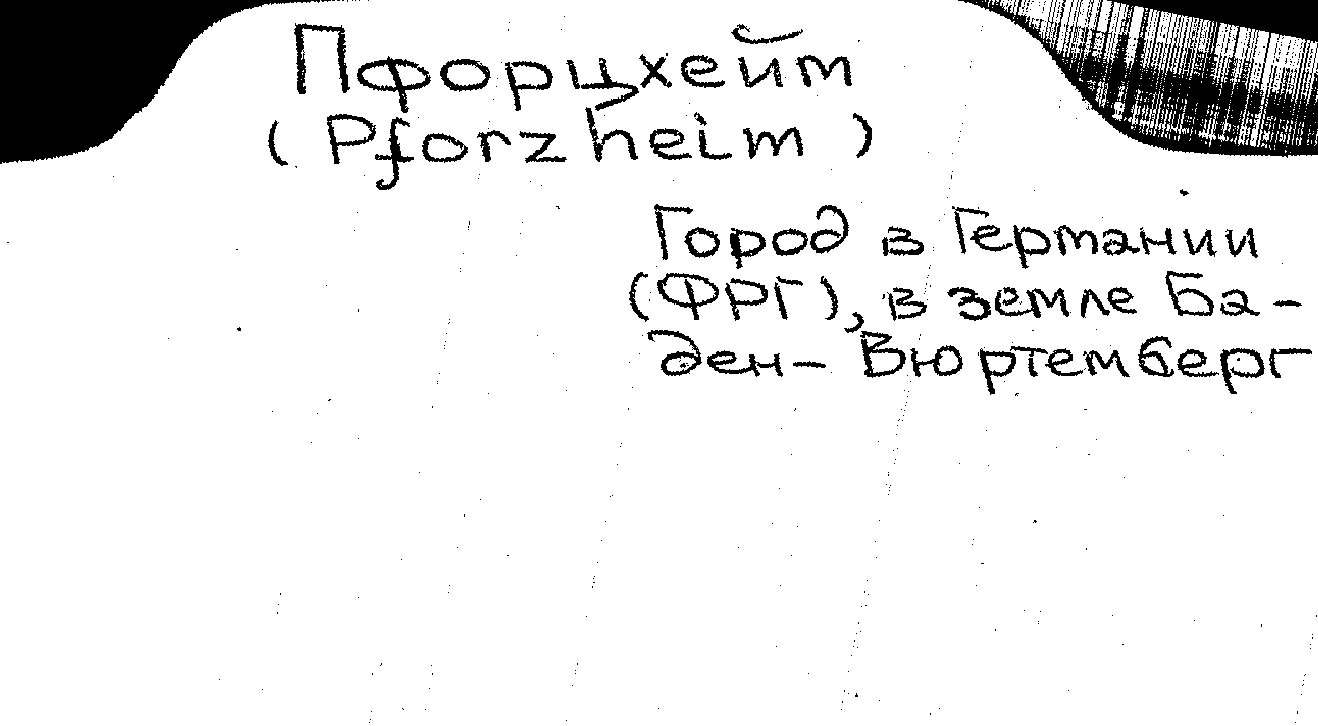 Пфорцхейм
(Pforzheim)
Город в Германии
(ФРГ), в земле Ба-
ден-Вюртемберг